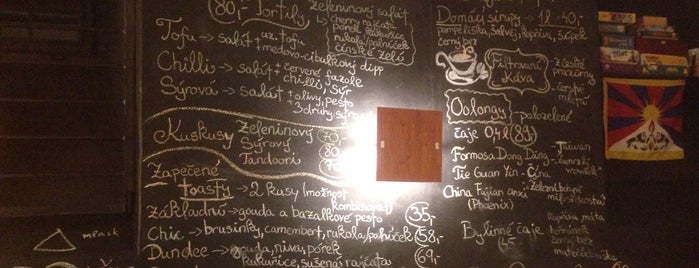 80,- Tortilly
zeleninový salát
↳ cherry rajčata
pórek, kukuřice
rukola/polníček
čínské zelí
Tofu → salát + uz. tofu
+ medovo-cibulkový dipp
Chilli → salát + červené fazole
chilli, sýr
Sýrová → salát + olivy, pesto
+ 3 druhy sýrů
Kuskusy zeleninový 70,-
Sýrový 80
Tandoori
Zapečené
toasty → 2 kusy (možnost
kombinovat)
základní → gouda a bazalkové pesto 35,-
Chic → brusinky, camembert, rukola/polníček 58,-
Dundee → gouda, niva, pórek 69,-
kukuřice, sušená rajčata
Domácí sirupy → 1l - 40,-
pampeliška, šalvěj, kopřiva, šípek
černý bez
Filtrovaná
Káva
z české
pražírny
- české
města
Oolongy - polozelené
čaje 0,4l 89,-
Formosa Dong Ding - Taiwan
Tie Guan Yin - Čína
China Fujian anxi
(Phoenix)
milosrdenství
Bylinné čaje
45,-
kopřiva, máta
černý bez
mateřídouška
mlask